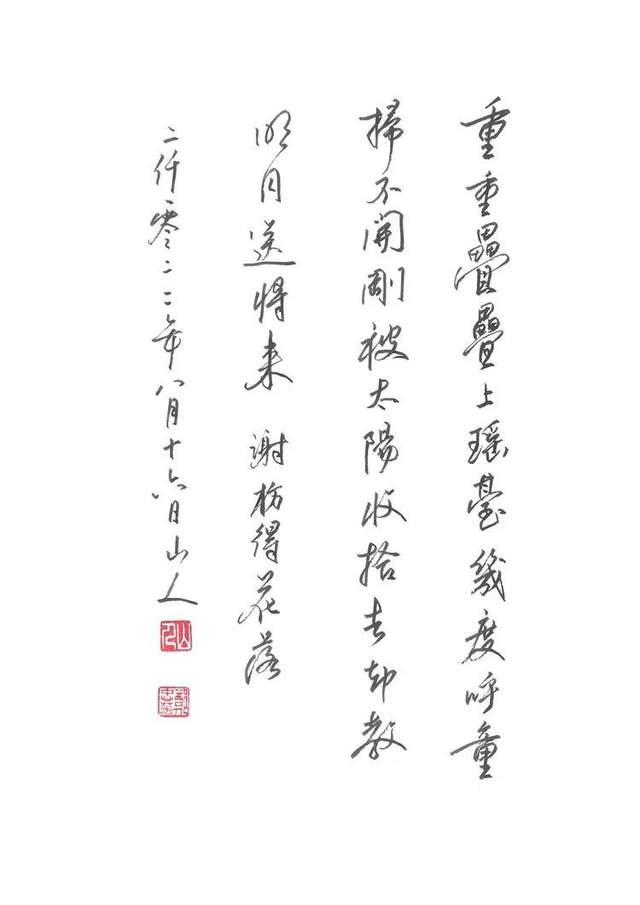 重重疊疊上瑶臺幾度呼童
掃不開剛被太陽收拾去却教
明月送將来 謝枋得花落
二仟零二二年八月十六日山人
山人